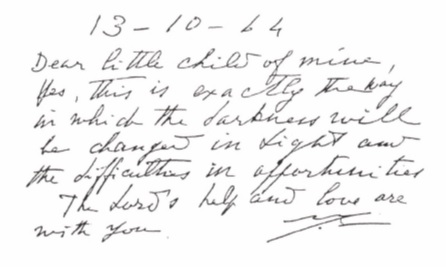 13-10-64
Dear little child of mine,
Yes, this is exactly the way
in which the darkness will
be changed in Light and
the difficulties in opportunities
The Lord's help and love are
with you.